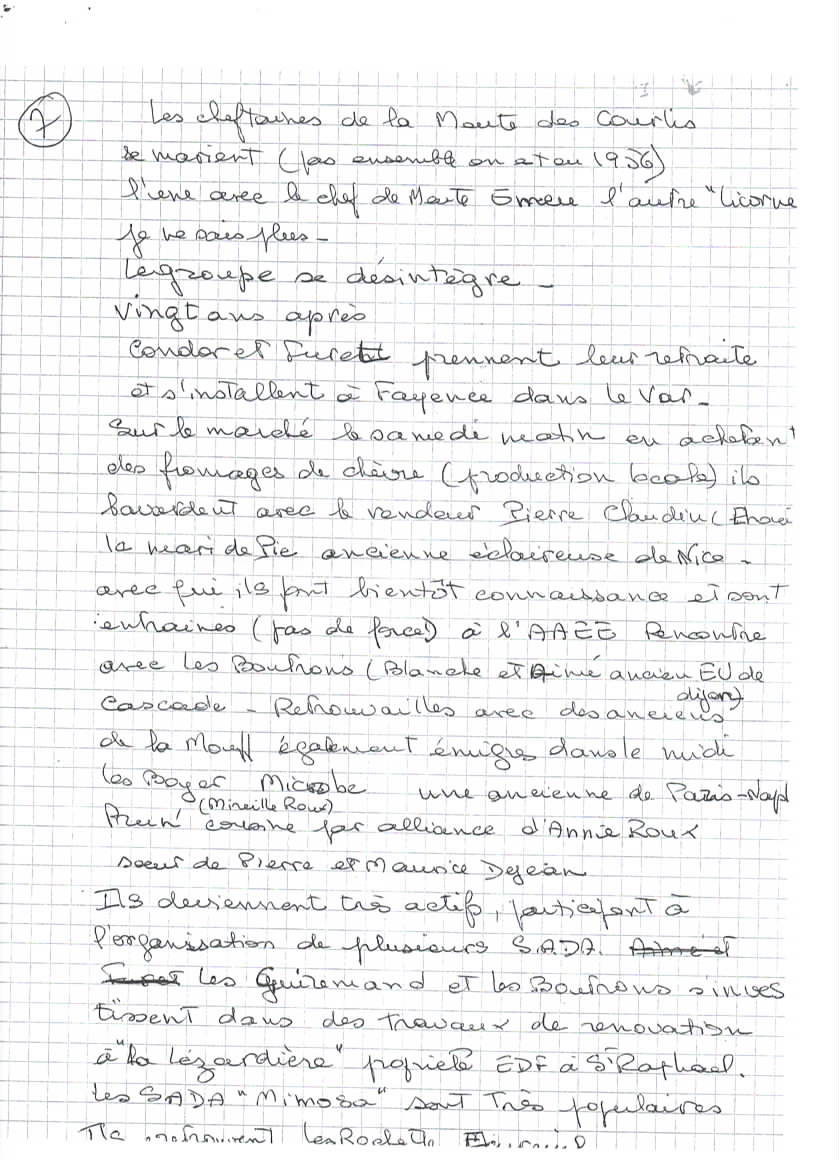 7
Les cheftaines de la Meute des Courlis
se marient (pas ensemble on est en 1956)
l'une avec le chef de Meute l'autre "Licorne
je ne sais plus -
Le groupe se désintègre -
Vingt ans après
Condor et Furet prennent leur retraite
et s'installent à Fayence dans le Var -
Sur le marché le samedi matin en achetant
des fromages de chèvre (production locale) ils
bavardent avec le vendeur Pierre Claudin (
le mari de Pie ancienne éclaireuse de Nice -
avec qui ils font bientôt connaissance et sont
entrainés (pas de force!) à l'AAEE Rencontre
avec les Boutrons (Blanche et Aimé ancien EU de
dijon)
Cascade - Retrouvailles avec des anciens
de la Mouff également émigrés dans le midi
les Boyer Microbe une ancienne de Paris-Nord
(Mireille Roux)
cousine par alliance d'Annie Roux
soeur de Pierre et Maurice Dejean
Ils deviennent très actifs, participent à
l'organisation de plusieurs S.A.D.A. Aimé et
Furet les Guiremand et les Boutrons s'inves
tissent dans des travaux de renovation
à "la Lézardière" propriété EDF à St Raphael.
Les SADA "Mimosa" sont très populaires